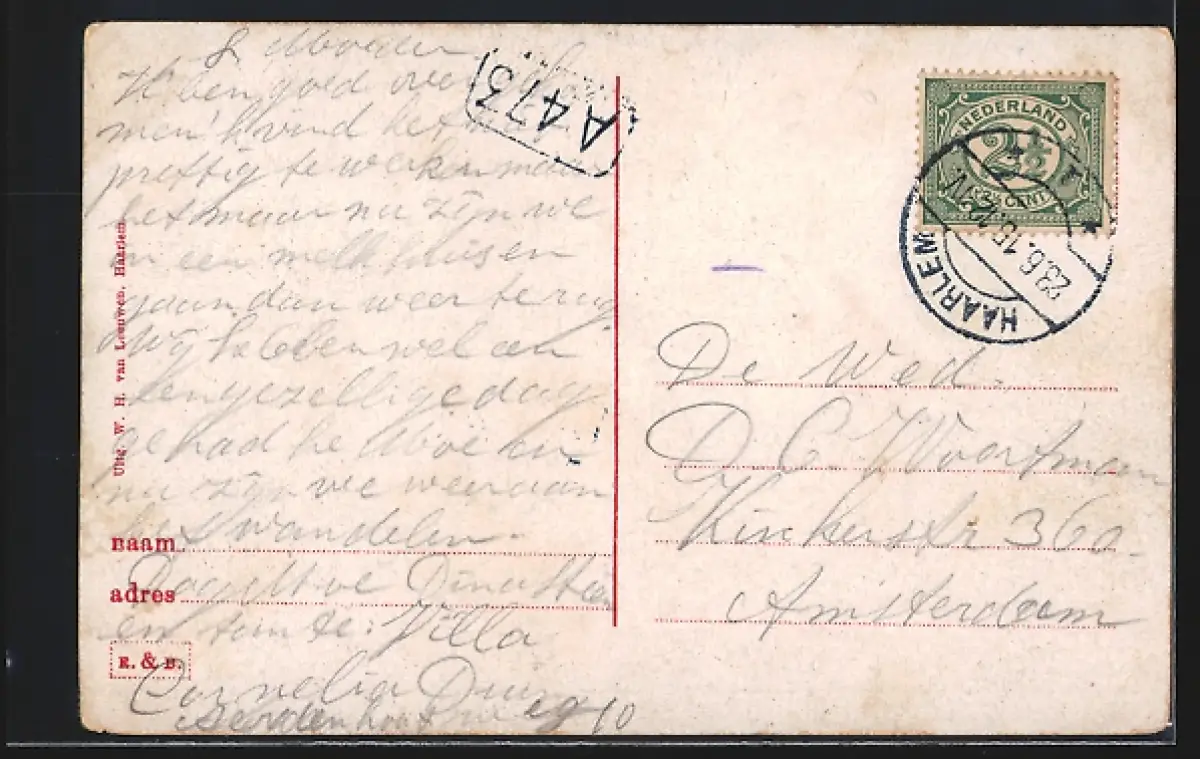 L Moeder
Ik ben goed over
men k vind het
prettig te werken maar
het maar nu zijn we
in een melkhuis en
gaan dan weer terug
Wij hebben wel een
een gezellige dag
gehad he Moe en
nu zijn we weer aan
het wandelen.
Daag Moe Dina
Villa
Cornelia
weg 10
naam
adres
R. & B.
Uitg. W. H. van Leeuwen, Haarlem
A 473
NEDERLAND
2½
2½ CENT
HAARLEM
23.6.15.12-1V
De Wed.
D C Woortman
Kinkerstr 360.
Amsterdam